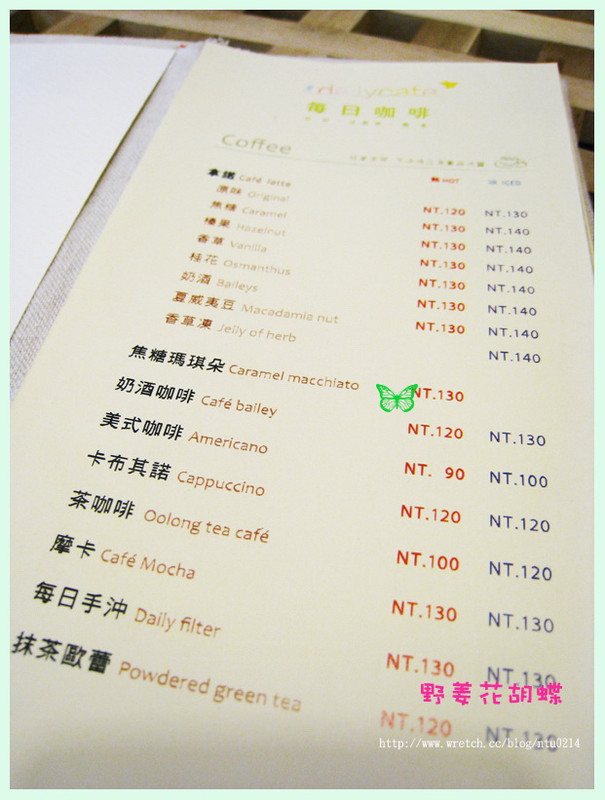 dailycafe
每日咖啡
Coffee
拿鐵 Café latte 熱 HOT 冰 ICED
原味 Original NT.120 NT.130
焦糖 Caramel NT.130 NT.140
榛果 Hazelnut NT.130 NT.140
香草 Vanilla NT.130 NT.140
桂花 Osmanthus NT.130 NT.140
奶酒 Baileys NT.130 NT.140
夏威夷豆 Macadamia nut NT.130 NT.140
香草凍 Jelly of herb NT.140
焦糖瑪琪朵 Caramel macchiato NT.130
奶酒咖啡 Café bailey NT.120 NT.130
美式咖啡 Americano NT. 90 NT.100
卡布其諾 Cappuccino NT.120 NT.120
茶咖啡 Oolong tea café NT.100 NT.120
摩卡 Café Mocha NT.130 NT.130
每日手沖 Daily filter NT.130 NT.130
抹茶歐蕾 Powdered green tea NT.120 NT.130
野姜花胡蝶
http://www.wretch.cc/blog/ntu0214